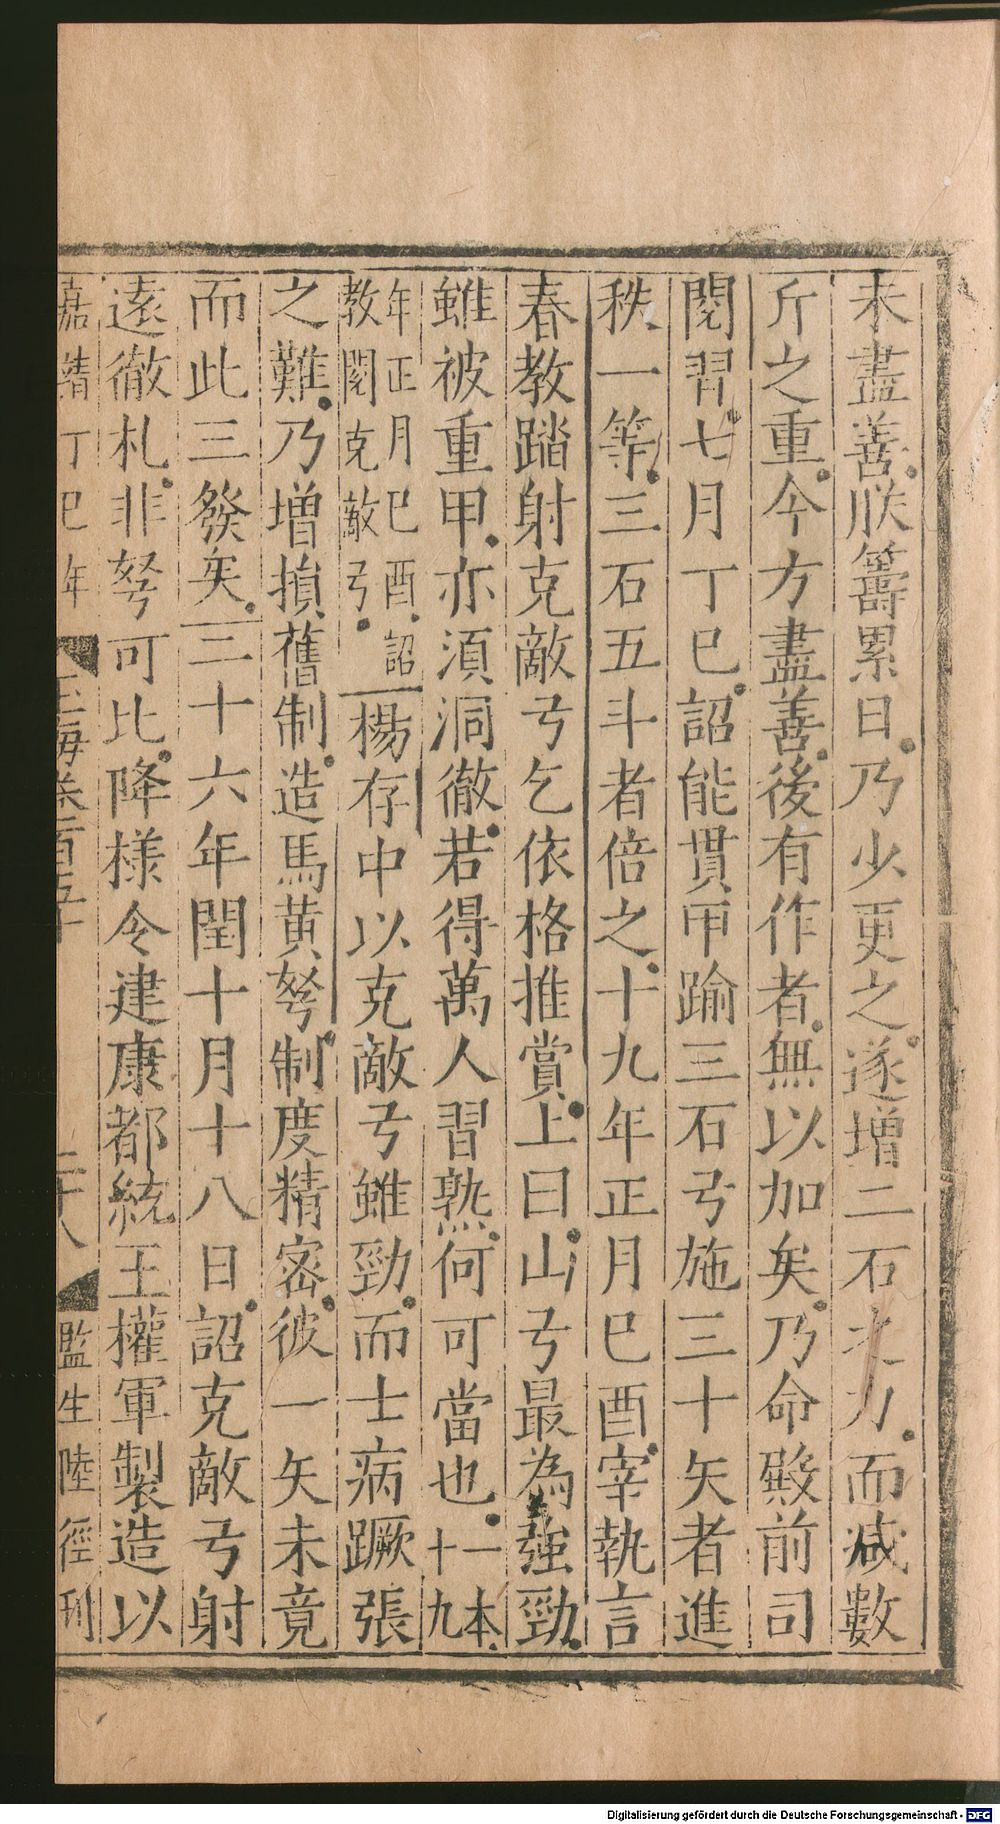 未盡善朕籌累日乃少更之遂増二石之力而减數
斤之重今方盡善後有作者無以加矣乃命殿前司
閱習七月丁巳詔能貫甲踰三石弓施三十矢者進
秩一等三石五斗者倍之十九年正月巳酉宰執言
春教踏射克敵弓乞依格推賞上曰山弓最為強勁
雖被重甲亦須洞徹若得萬人習熟何可當也一本十九
年正月巳酉詔教閱克敵弓楊存中以克敵弓雖勁而士病蹶張
之難乃增損舊制造馬黄弩制度精密彼一矢未竟
而此三發矣二十六年閏十月十八日詔克敵弓射
遠徹札非弩可比降様令建康都統王權軍製造以
嘉靖丁巳年 玉海卷百五十 二十八 監生陸徑刊
Digitalisierung gefördert durch die Deutsche Forschungsgemeinschaft - DFG